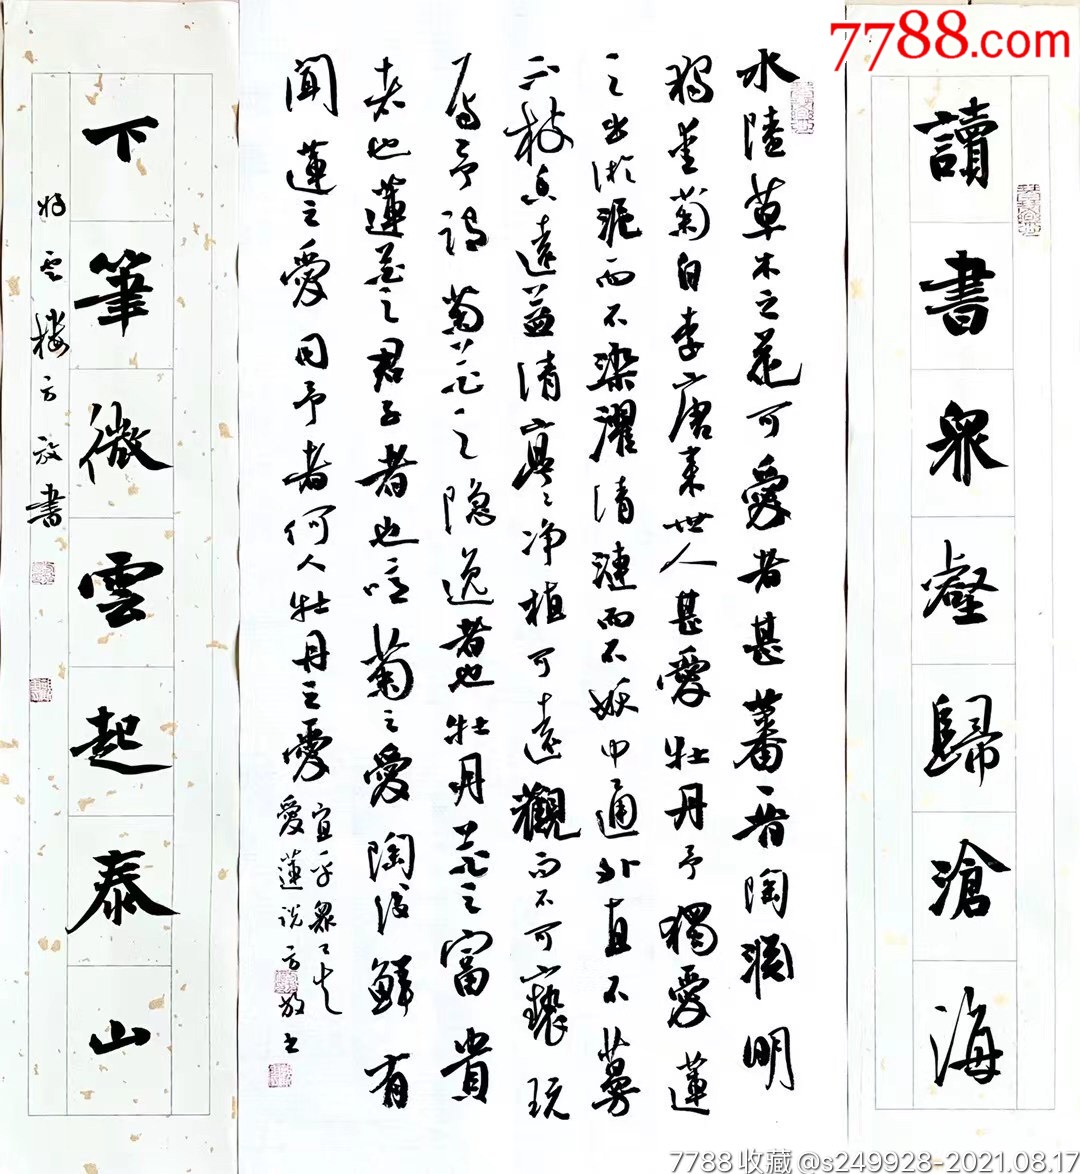 7788.com
讀書眾壑歸滄海
水陸草木之花可愛者甚蕃晉陶淵明
獨愛菊自李唐来世人甚愛牡丹予獨愛蓮
之出淤泥而不染濯清漣而不妖中通外直不蔓
不枝香遠益清亭々净植可遠觀而不可褻玩
焉予謂菊花之隐逸者也牡丹花之富貴
者也蓮花之君子者也噫菊之愛陶後鮮有
聞蓮之愛同予者何人牡丹之愛
宜乎眾矣
愛蓮説方放书
下筆微雲起泰山
雲樓方放書
7788收藏@s249928-2021.08.17